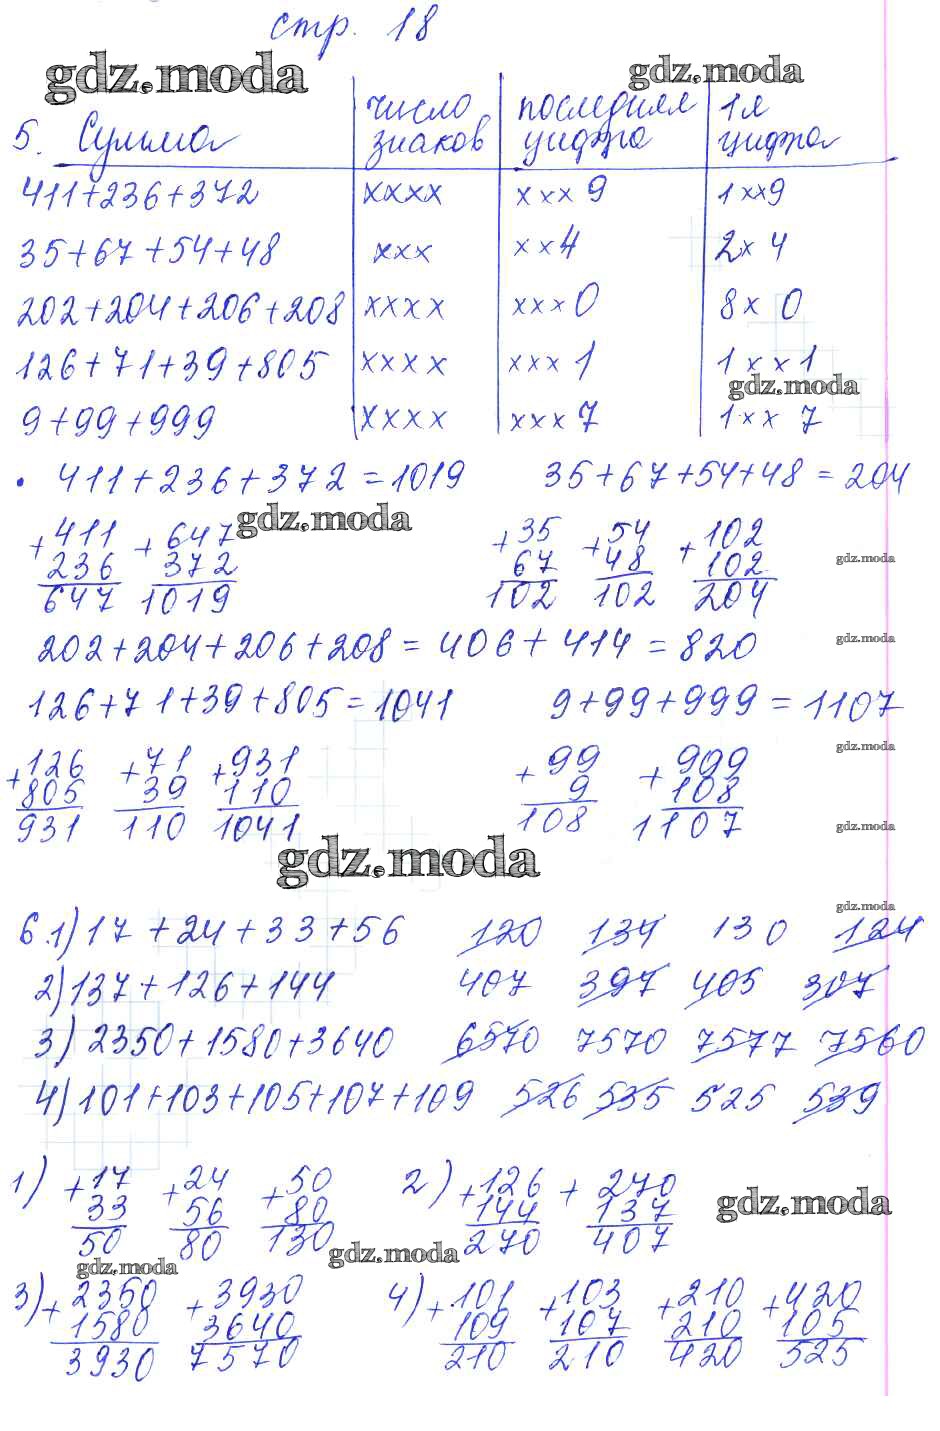 стр. 18
gdz.moda gdz.moda
5. Сумма число знаков последняя цифра 1я цифра
411+236+372 xxxx xxx9 1xx9
35+67+54+48 xxx xx4 2x4
202+204+206+208 xxxx xxx0 8x0
126+71+39+805 xxxx xxx1 1xx1
gdz.moda
9+99+999 xxxx xxx7 1xx7
• 411+236+372=1019 35+67+54+48=204
gdz.moda
+411 +647 +35 +54 +102
236 372 67 48 102 gdz.moda
647 1019 102 102 204
202+204+206+208=406+414=820 gdz.moda
126+71+39+805=1041 9+99+999=1107
gdz.moda
+126 +71 +931 +99 +999
805 39 110 9 108
931 110 1041 108 1107 gdz.moda
gdz.moda
gdz.moda
6.1) 17+24+33+56 120 134 130 124
2) 137+126+144 407 397 405 307
3) 2350+1580+3640 6570 7570 7577 7560
4) 101+103+105+107+109 526 535 525 539
1) +17 +24 +50 2) +126 +270
33 56 80 144 137 gdz.moda
50 80 130 270 407
gdz.moda gdz.moda
3) +2350 +3930 4) +101 +103 +210 +420
1580 3640 109 107 210 105
3930 7570 210 210 420 525